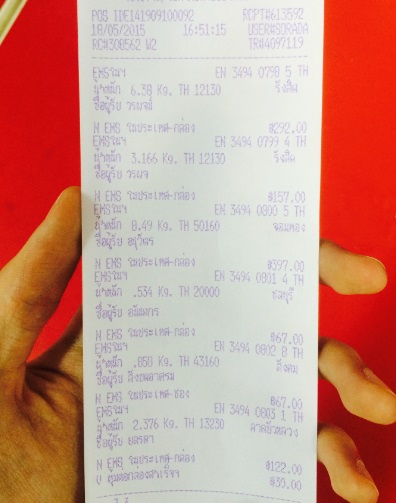 POS IIE141909100092 RCPT#613592
18/05/2015 16:51:15 USER#SORADA
RC#308562 W2 TR#4097119
EMSในฯ EN 3494 0798 5 TH
น้ำหนัก 6.38 Kg. TH 12130 รังสิต
ชื่อผู้รับ
N EMS ในประเทศ-กล่อง ฿292.00
EMSในฯ EN 3494 0799 4 TH
น้ำหนัก 3.166 Kg. TH 12130 รังสิต
ชื่อผู้รับ
N EMS ในประเทศ-กล่อง ฿157.00
EMSในฯ EN 3494 0800 5 TH
น้ำหนัก 8.49 Kg. TH 50160 จอมทอง
ชื่อผู้รับ
N EMS ในประเทศ-กล่อง ฿397.00
EMSในฯ EN 3494 0801 4 TH
น้ำหนัก .534 Kg. TH 20000 ชลบุรี
ชื่อผู้รับ
N EMS ในประเทศ-กล่อง ฿67.00
EMSในฯ EN 3494 0802 8 TH
น้ำหนัก .850 Kg. TH 43160
ชื่อผู้รับ
N EMS ในประเทศ-ซอง ฿67.00
EMSในฯ EN 3494 0803 1 TH
น้ำหนัก 2.376 Kg. TH 13230 ลาดบัวหลวง
ชื่อผู้รับ
N EMS ในประเทศ-กล่อง ฿122.00
฿30.00